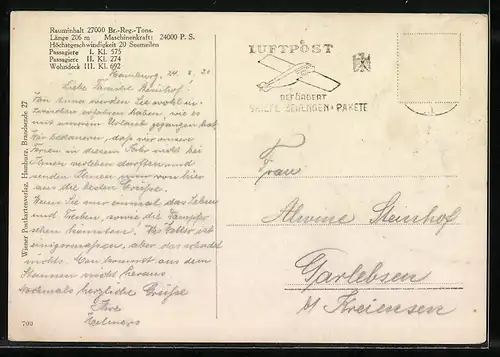 Rauminhalt 27000 Br.-Reg.-Tons.
Länge 206 m Maschinenkraft: 24000 P. S.
Höchstgeschwindigkeit 20 Seemeilen
Passagiere I. Kl. 575
Passagiere II. Kl. 274
Wohndeck III. Kl. 692
Hamburg, 24. 8.
Liebe Familie Steinhof!
Von Anna werden Sie wohl in-
zwischen erfahren haben, wie es
mit unserem Urlaub gegangen hat.
Wir bedauern, daß wir unsere
Ferien in diesem Jahr nicht bei
Ihnen verleben durften und
senden Ihnen nun von hier
aus die besten Grüsse.
Wenn Sie nur einmal das Leben
und Treiben, sowie die Dampfer
sehen könnten. Das Wetter ist
einigermassen, aber das schadet
nichts. Man kommt aus dem
Staunen nicht heraus.
Nochmals herzliche Grüsse
Ihre
Wiener Postkartenverlag, Hamburg, 27
700
LUFTPOST
BEFÖRDERT
BRIEFE ZEITUNGEN PAKETE
Frau
Alwine Steinhof
Garlebsen
b/ Kreiensen